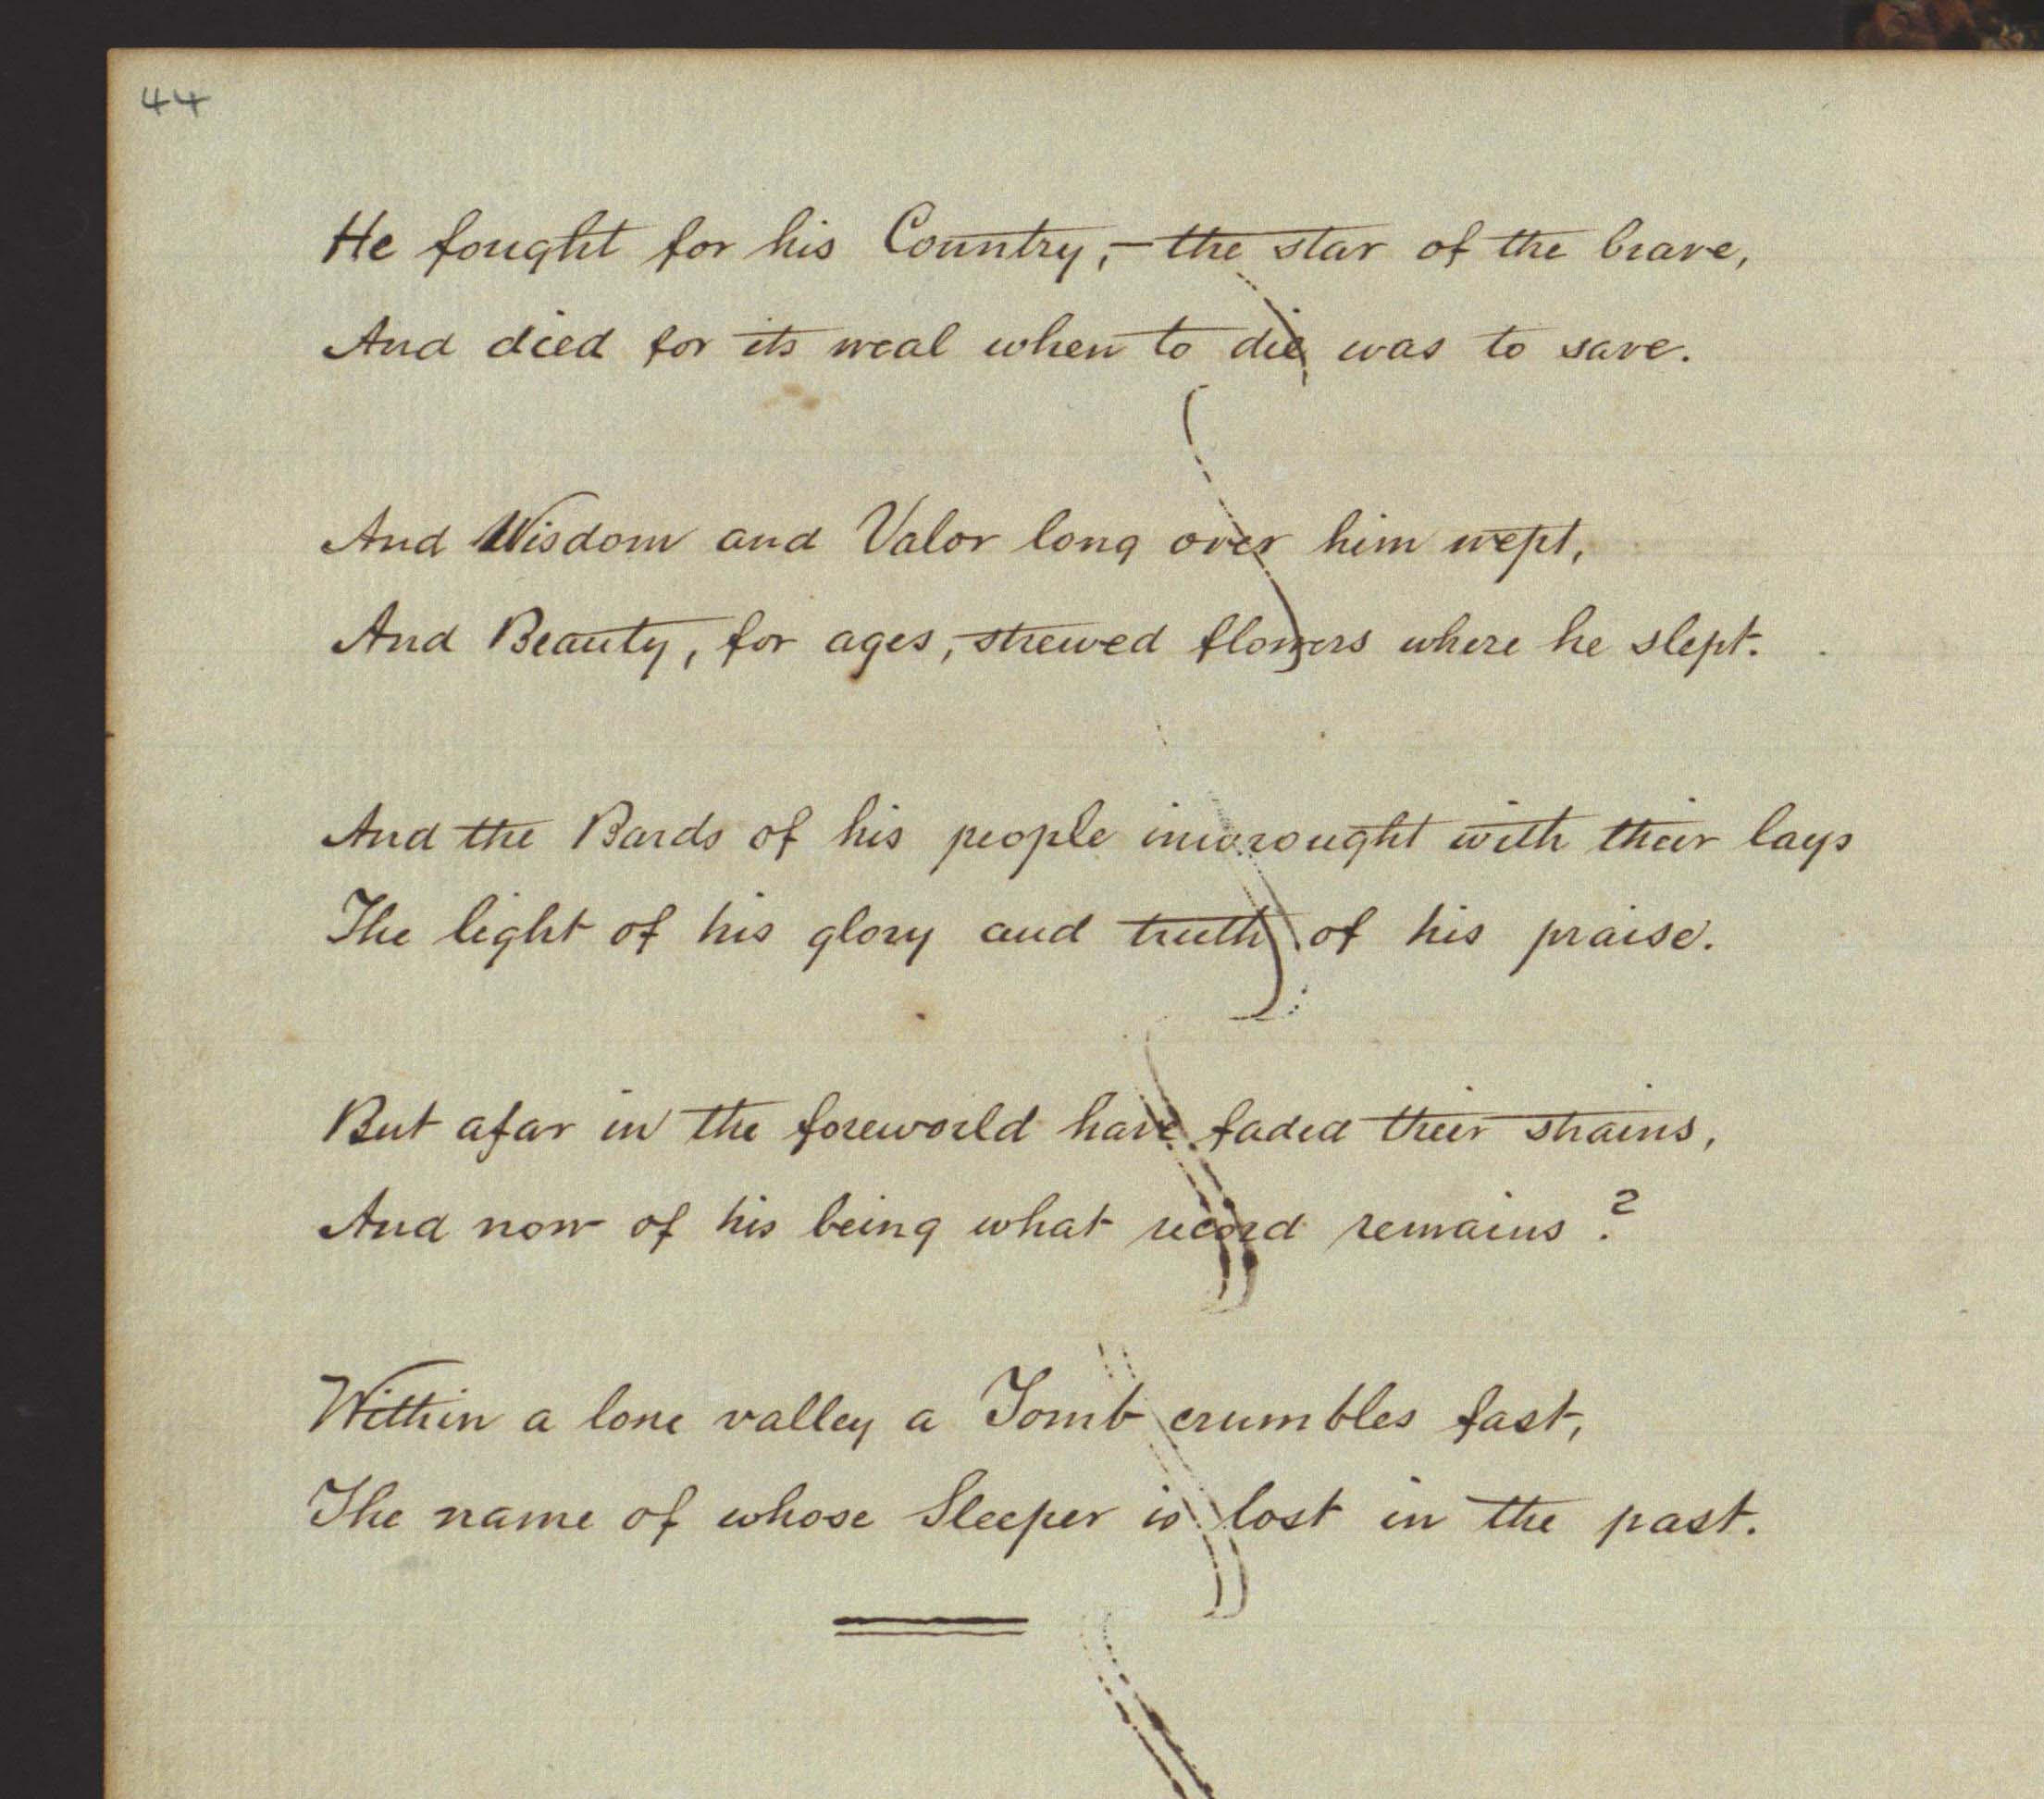 44
He fought for his Country,—the star of the brave,
And died for its weal when to die was to save.
And Wisdom and Valor long over him wept,
And Beauty, for ages, strewed flowers where he slept.
And the Bards of his people inwrought with their lays
The light of his glory and truth of his praise.
But afar in the foreworld have faded their strains,
And now of his being what record remains?
Within a lone valley a Tomb crumbles fast,
The name of whose Sleeper is lost in the past.